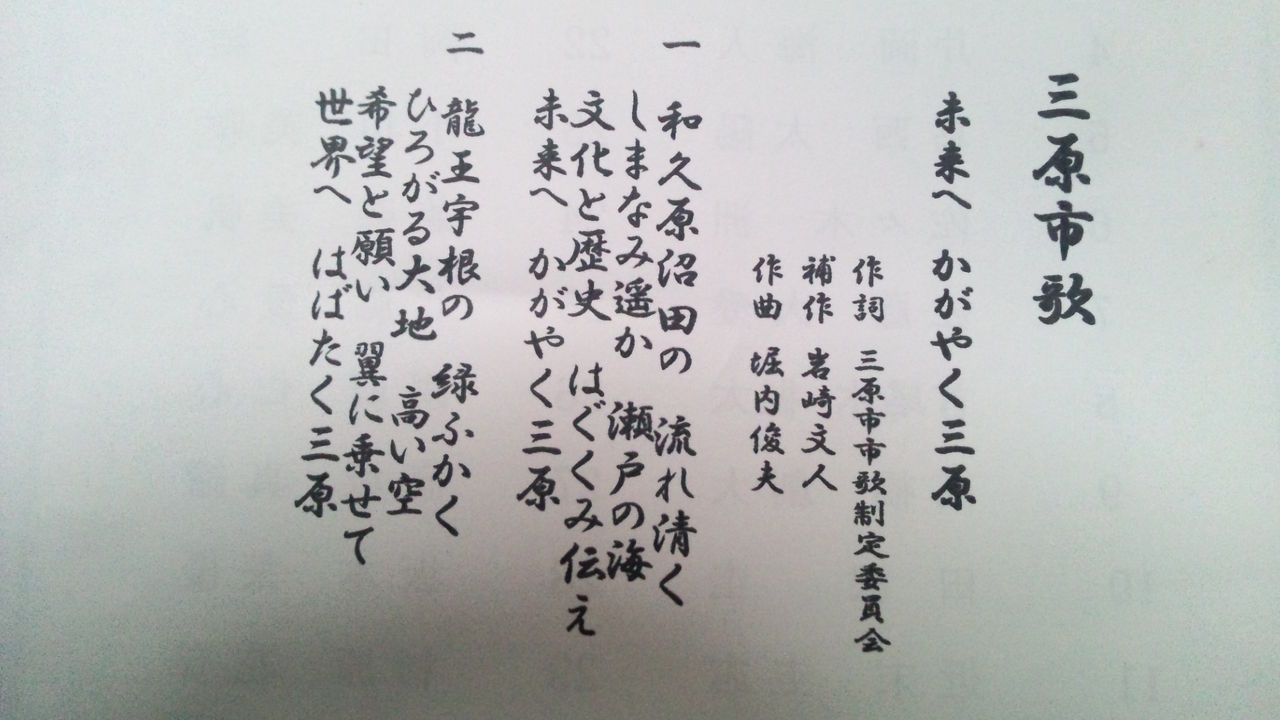 三原市歌
未来へ かがやく三原
作詞 三原市市歌制定委員会
補作 岩崎文人
作曲 堀内俊夫
一 和久原沼田の 流れ清く
しまなみ遥か 瀬戸の海
文化と歴史 はぐくみ伝え
未来へ かがやく三原
二 龍王宇根の 緑ふかく
ひろがる大地 高い空
希望と願い 翼に乗せて
世界へ はばたく三原